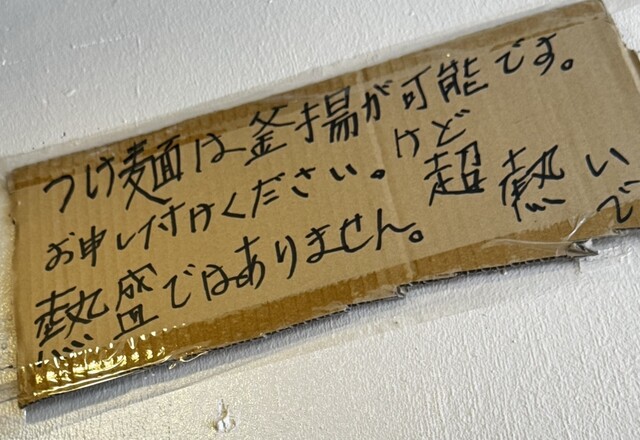 つけ麺は釜揚が可能です。
お申し付けください。けど
熱盛ではありません。超熱いで